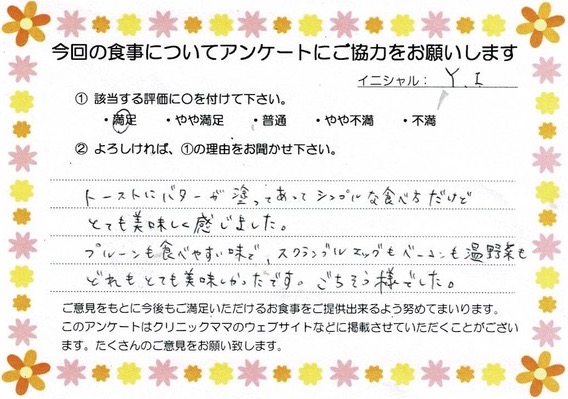 今回の食事についてアンケートにご協力をお願いします
イニシャル： Y.I
① 該当する評価に〇を付けて下さい。
・満足 ・やや満足 ・普通 ・やや不満 ・不満
② よろしければ、①の理由をお聞かせ下さい。
トーストにバターが塗ってあってシンプルな食べ方だけど
とても美味しく感じました。
プルーンも食べやすい味で、スクランブルエッグもベーコンも温野菜も
どれもとても美味しかったです。ごちそう様でした。
ご意見をもとに今後もご満足いただけるお食事をご提供出来るよう努めてまいります。
このアンケートはクリニックママのウェブサイトなどに掲載させていただくことがござい
ます。たくさんのご意見をお願い致します。